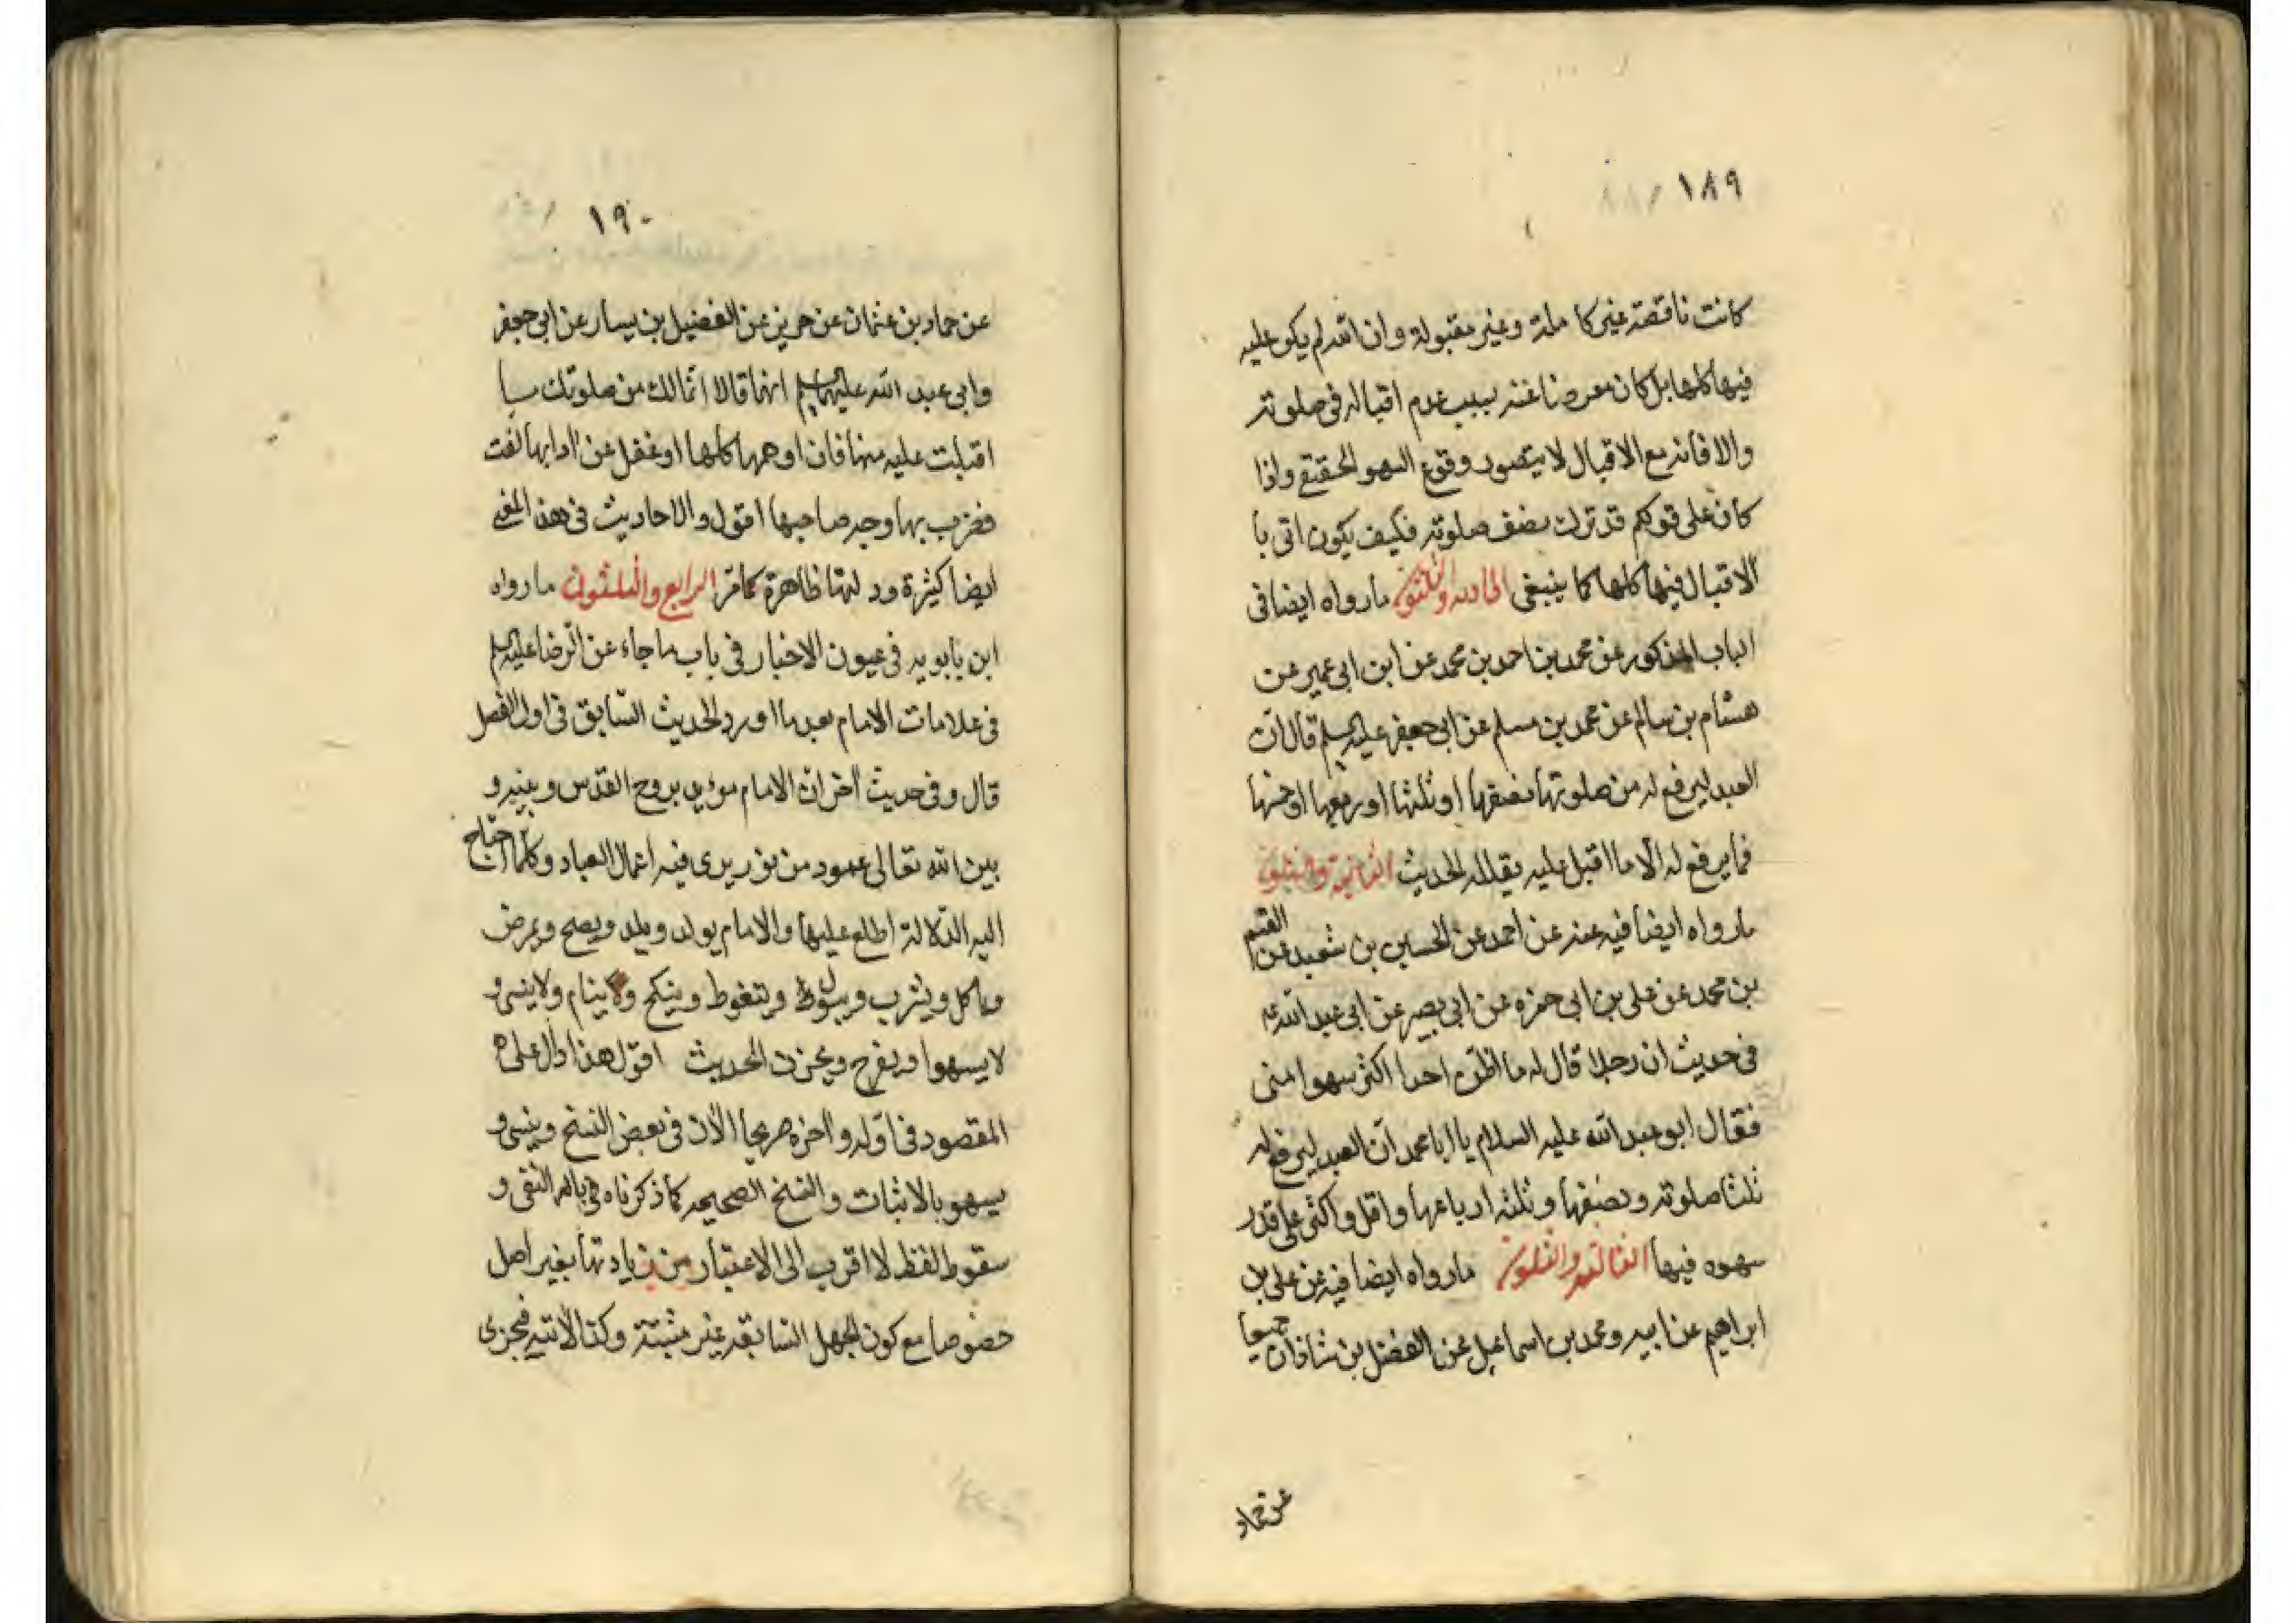 ١٨٩
كانت ناقصة غير كاملة وغير مقبولة وان الله لم يكن عليه
فيها كلها بل كان معرضا عنه بسبب عدم اقباله في صلوته
والا فانه مع الاقبال لا يتصور وقوع السهو الحقيقي واذا
كان على قولكم قد ترك نصف صلوته فكيف يكون اتى با
الاقبال فيها كلها كما ينبغي الحادية والثلثون ما رواه ايضا في
الباب المذكور عن محمد بن احمد بن محمد عن ابن ابي عمير عن
هشام بن سالم عن محمد بن مسلم عن ابي جعفر عليه السلم قال ان
العبد ليرفع له من صلوتها نصفها او ثلثها او ربعها او خمسها
فما يرفع له الا ما اقبل عليه بقلبه الحديث الثانية والثلثون
ما رواه ايضا فيه عنه عن احمد عن الحسين بن سعيد عن القسم
بن محمد عن علي بن ابي حمزه عن ابي بصير عن ابي عبد الله ع
في حديث ان رجلا قال له ما اظن احدا اكثر سهوا مني
فقال ابو عبد الله عليه السلام يا ابا محمد ان العبد ليرفع له
ثلث صلوته ونصفها وثلثه ارباعها واقل واكثر على قدر
سهوه فيها الثالثة والثلثون ما رواه ايضا فيه عن علي بن
ابراهيم عن ابيه ومحمد بن اسماعيل عن الفضل بن شاذان جميعا
عن حماد
١٩٠
عن حماد بن عثمان عن حريز عن الفضيل بن يسار عن ابي جعفر
وابي عبد الله عليهما السلم انهما قالا انما لك من صلوتك ما
اقبلت عليه منها فان اوهمها كلها او غفل عن ادابها لفت
فضرب بها وجه صاحبها اقول والاحاديث في هذا المعنى
ايضا كثيرة ودلالتها ظاهرة كما مر الرابع والثلثون ما رواه
ابن بابويه في عيون الاخبار في باب ما جاء عن الرضا عليه السلم
في علامات الامام بعد ما اورد الحديث السابق في اول الفصل
قال وفي حديث اخر ان الامام مؤيد بروح القدس وبينه و
بين الله تعالى عمود من نور يرى فيه اعمال العباد وكلما احتاج
اليه الدلالة اطلع عليها والامام يولد ويلد ويصح ويمرض
وياكل ويشرب ويبول ويتغوط وينكح ولا ينام ولا ينسى و
لا يسهوا ويفرح ويحزن الحديث اقول هذا دال على
المقصود في اوله واخره صريحا الا ان في بعض النسخ وينسى و
يسهو بالاثبات والنسخ الصحيحه كما ذكرناه هي بالنفي و
سقوط لفظ لا اقرب الى الاعتبار من زيادتها بغير اصل
خصوصا مع كون الجهل السابقه غير مثبتة وكذا الاتيه فيجزى